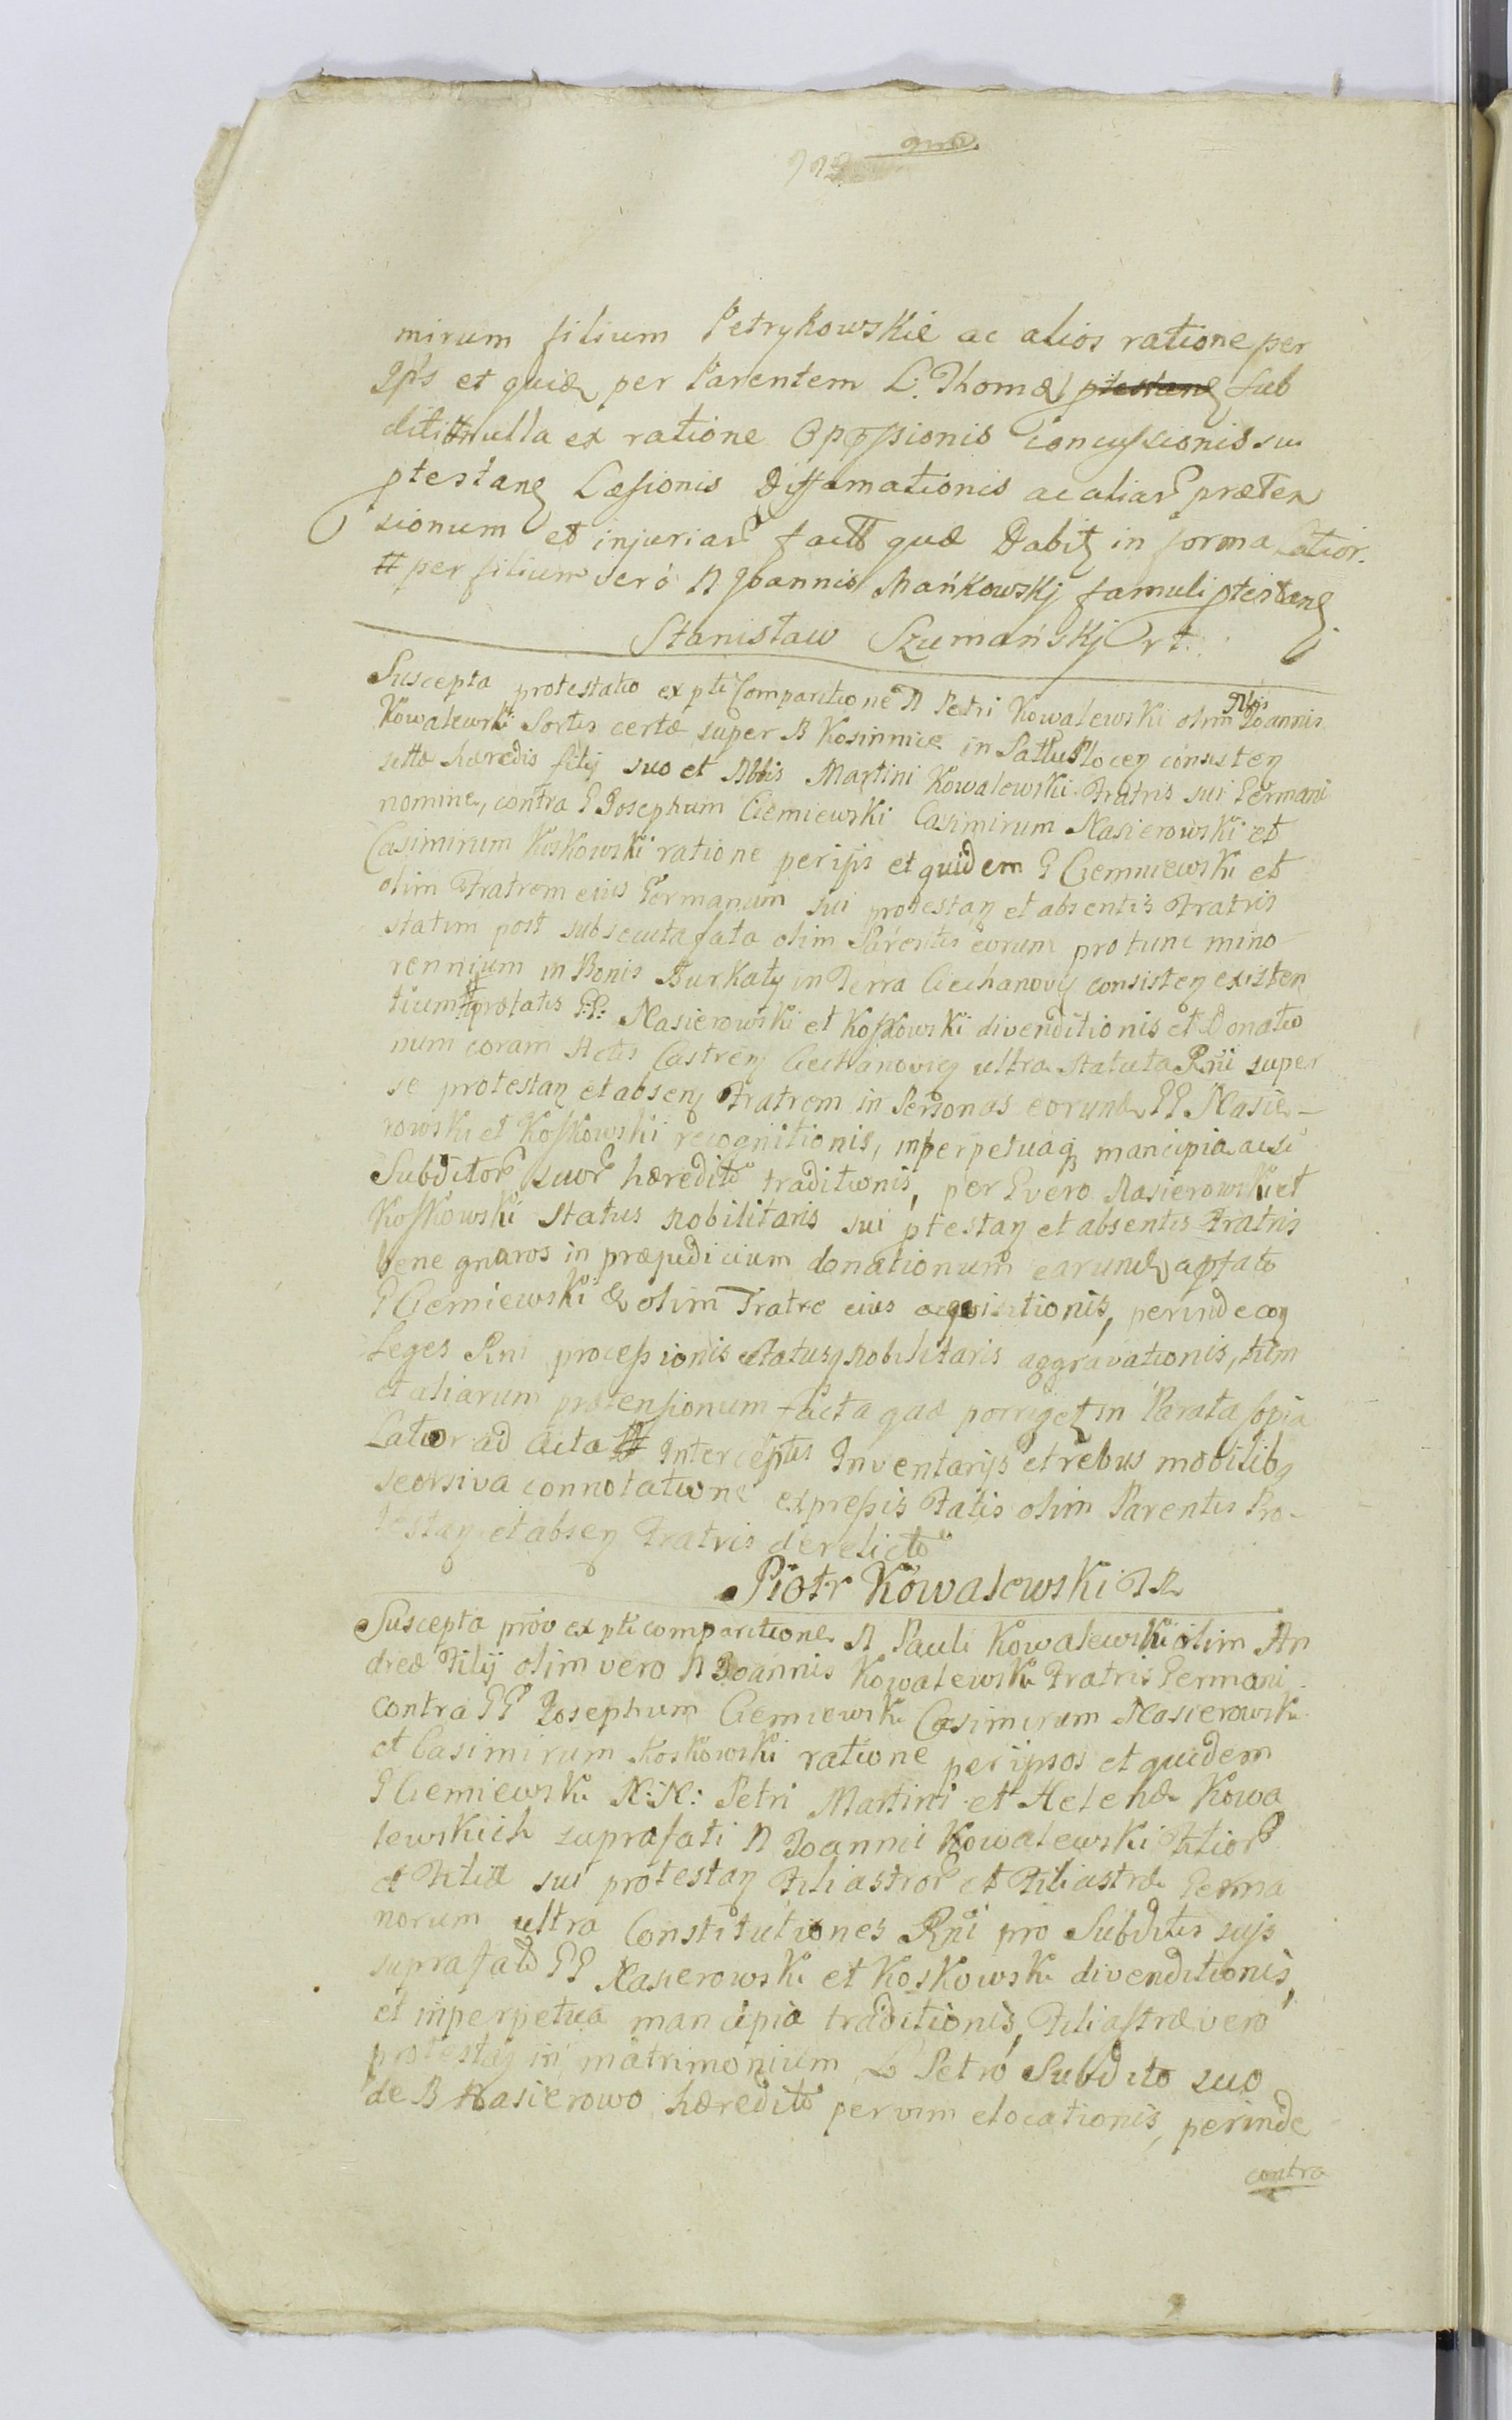 mirum filium Petrykowskie ac alios ratione per
Ips et quidẽ per Parentem L. Thomæ ptestanẽ sub
diti # nulla ex ratione Oppssionis concussionis sui
ptestanẽ Læsionis Diffamationis ac aliar præten
sionum et injuriar factũ quæ Dabit in forma Latior.
# per filium veró N Joannis Mańkowskj famuli ptestanẽ
Stanisław Szumańskj
Suscepta protestatio ex pti Comparitione N Petri Kowalewski olim Nblis Joannis
Kowalewski Sortis certæ super B Kosinmice in Pattu Plocen consisten
hæredis filij suo et Nblis Martini Kowalewski Fratris sui Germani
nomine, contra G Josephum Ciemiewski Casimirum Nasierowski et
Casimirum Koskowski ratione per ijs et quidem G Ciemniewski et
olim Fratrem eius Germanum sui protestan et absentis Fratris
statim post subsecuta fata olim Parentis eorum pro tunc mino
rennium in Bonis Burkaty in Terra Ciechanovien consisten existen
tium # prætatis G:G: Nasierowski et Koskowski divenditionis et Donatio
num coram Actis Castren Ciechanovien ultra Statuta Rñi super
se protestan et absen Fratrem in Personas eorundẽ GG Nasie-
rowski et Koskowski recognitionis, inperpetuaq mancipia ac si
Subditor suor hæredito traditionis, per G vero Nasierowski et
Koskowski Status Nobilitaris sui ptestan et absentis Fratris
bene gnaros in præjudicium donationum earundẽ a pfato
G Ciemiewski & olim Fratre eius acquisitionis, perinde con
Leges Rni processionis Status Nobilitaris aggravationis, tum
et aliarum prætensionum facta quæ porriget in Parata Copia
Latior ad Acta # Interceptis Inventarijs et rebus mobilibq
seorsiva connotatione expressis Fatis olim Parentis Pro-
testan et absen Fratris derelicto
Piotr Kowalewski
Suscepta prõo ex pti comparitione N Pauli Kowalewski olim An
dreæ Filij olim vero N Joannis Kowalewski Fratris Germani
contra GG Josephum Ciemiewski Casimirum Nasierowski
et Casimirum Koskowski ratione per ipsos et quidem
G Ciemiewski N:N: Petri Martini et Helenæ Kowa
lewskich suprafati N Joannis Kowalewski Filior
et Filiæ sui protestan Filiastror et Filiastræ Germa
norum ultra Constitutiones Rñi pro Subditis sujs
suprafatis GG Nasierowski et Koskowski divenditionis,
et inperpetua mancipia traditionis, Filiastræ vero
protestan in matrimonium L Petro Subdito suo
de B Nasierowo hæredito per vim elocationis, perinde
contra